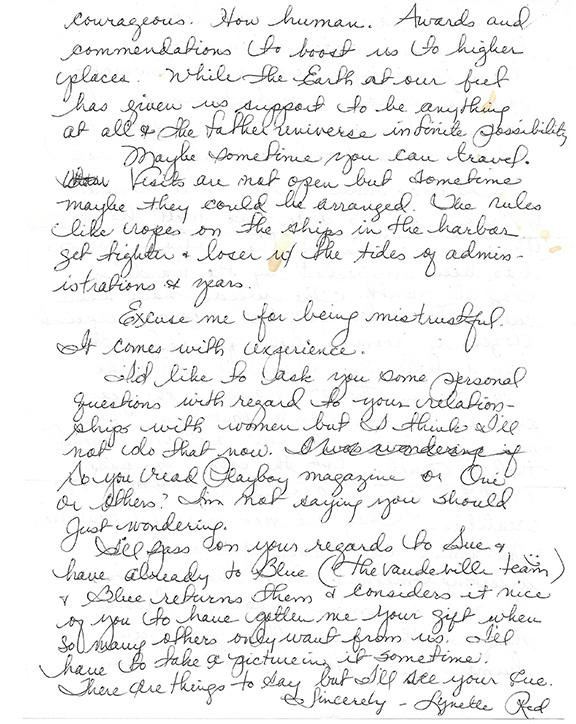 courageous. How human. Awards and
commendations to boost us to higher
places. While the Earth at our feet
has given us support to be anything
at all & the father universe infinite possibility
Maybe sometime you can travel.
Visits are not open but sometime
maybe they could be arranged. The rules
like ropes on the ships in the harbor
get tighter & loser w/ the tides of admin-
istrations & years.
Excuse me for being mistrustful.
It comes with experience.
I'd like to ask you some personal
questions with regard to your relation-
ships with women but I think I'll
not do that now. I was wondering if
Do you read Playboy magazine or Oui
or others? I'm not saying you should
Just wondering.
I'll pass on your regards to Sue &
have already to Blue (the vaudeville team)
& Blue returns them & considers it nice
of you to have gotten me your gift when
so many others only want from us. I'll
have to take a picture in it sometime.
There are things to say but I'll see your Cue.
Sincerely - Lynette Red